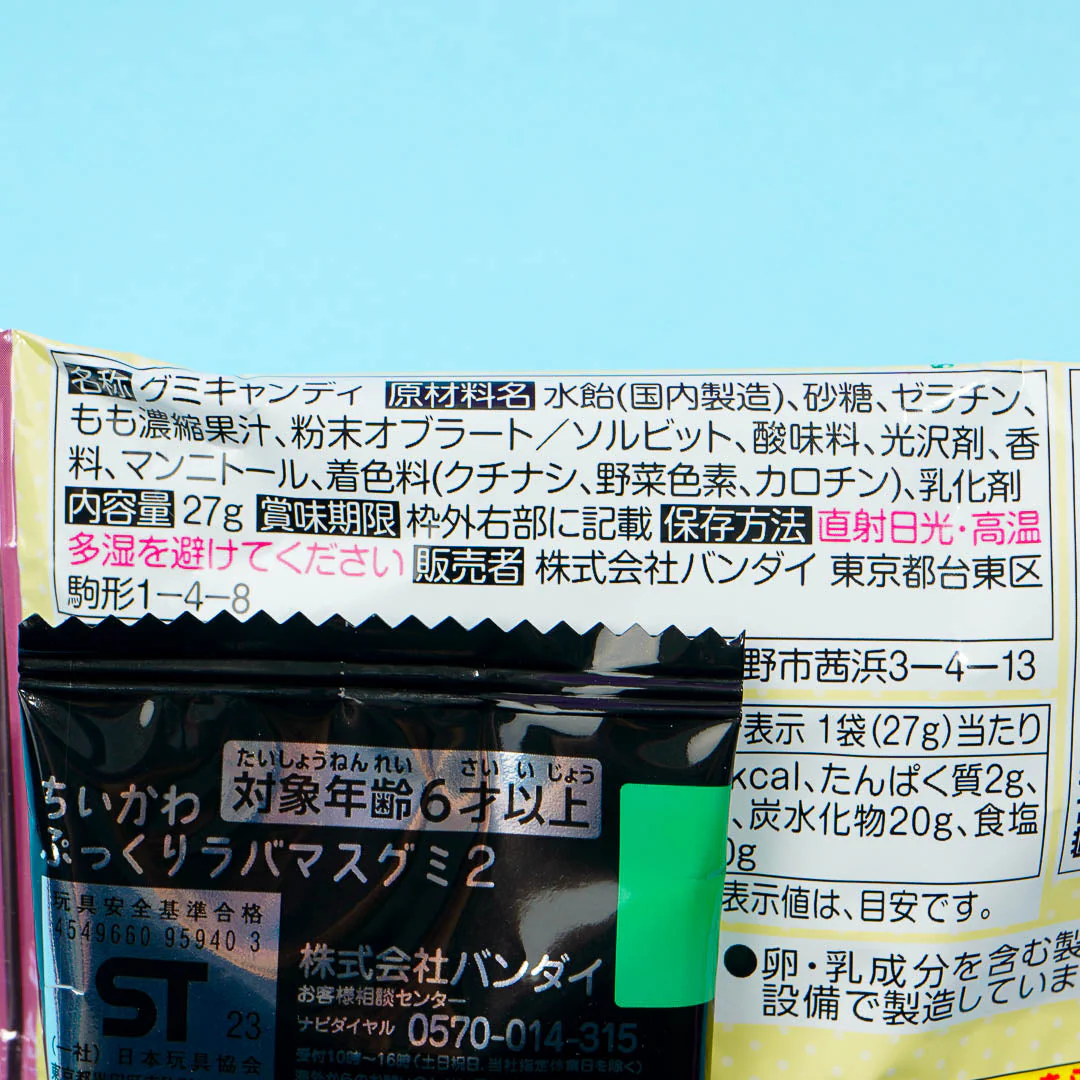 名称 グミキャンディ 原材料名 水飴(国内製造)、砂糖、ゼラチン、
もも濃縮果汁、粉末オブラート／ソルビット、酸味料、光沢剤、香
料、マンニトール、着色料(クチナシ、野菜色素、カロチン)、乳化剤
内容量 27g 賞味期限 枠外右部に記載 保存方法 直射日光・高温
多湿を避けてください 販売者 株式会社バンダイ 東京都台東区
駒形1-4-8
野市茜浜3-4-13
表示 1袋(27g)当たり
kcal、たんぱく質2g、
、炭水化物20g、食塩
0g
表示値は、目安です。
●卵・乳成分を含む製
設備で製造していま
たいしょうねんれい さいいじょう
対象年齢6才以上
ちいかわ
ぷっくりラバマスグミ2
玩具安全基準合格
4549660 95940 3
ST 23
(一社) 日本玩具協会
株式会社バンダイ
お客様相談センター
ナビダイヤル 0570-014-315
受付10時～16時(土日祝日、当社指定休業日を除く)